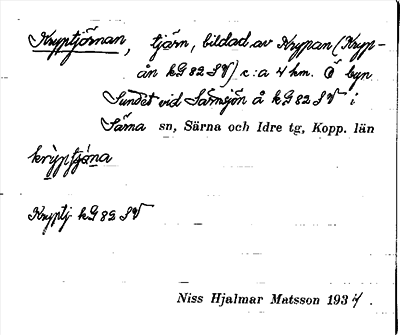 Kryptjörnan, tjärn, bildad av Krypan (Kryp-
ån kG 82 SV) c:a 4 km. Ö byn
Sundet vid Särnsjön å kG 82 SV i
Särna sn, Särna och Idre tg, Kopp. län
krypptjø̀na
Kryptj kG 82 SV
Niss Hjalmar Matsson 1934.